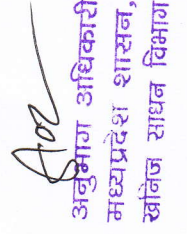 अनुभाग अधिकारी
मध्यप्रदेश शासन,
खनिज साधन विभाग